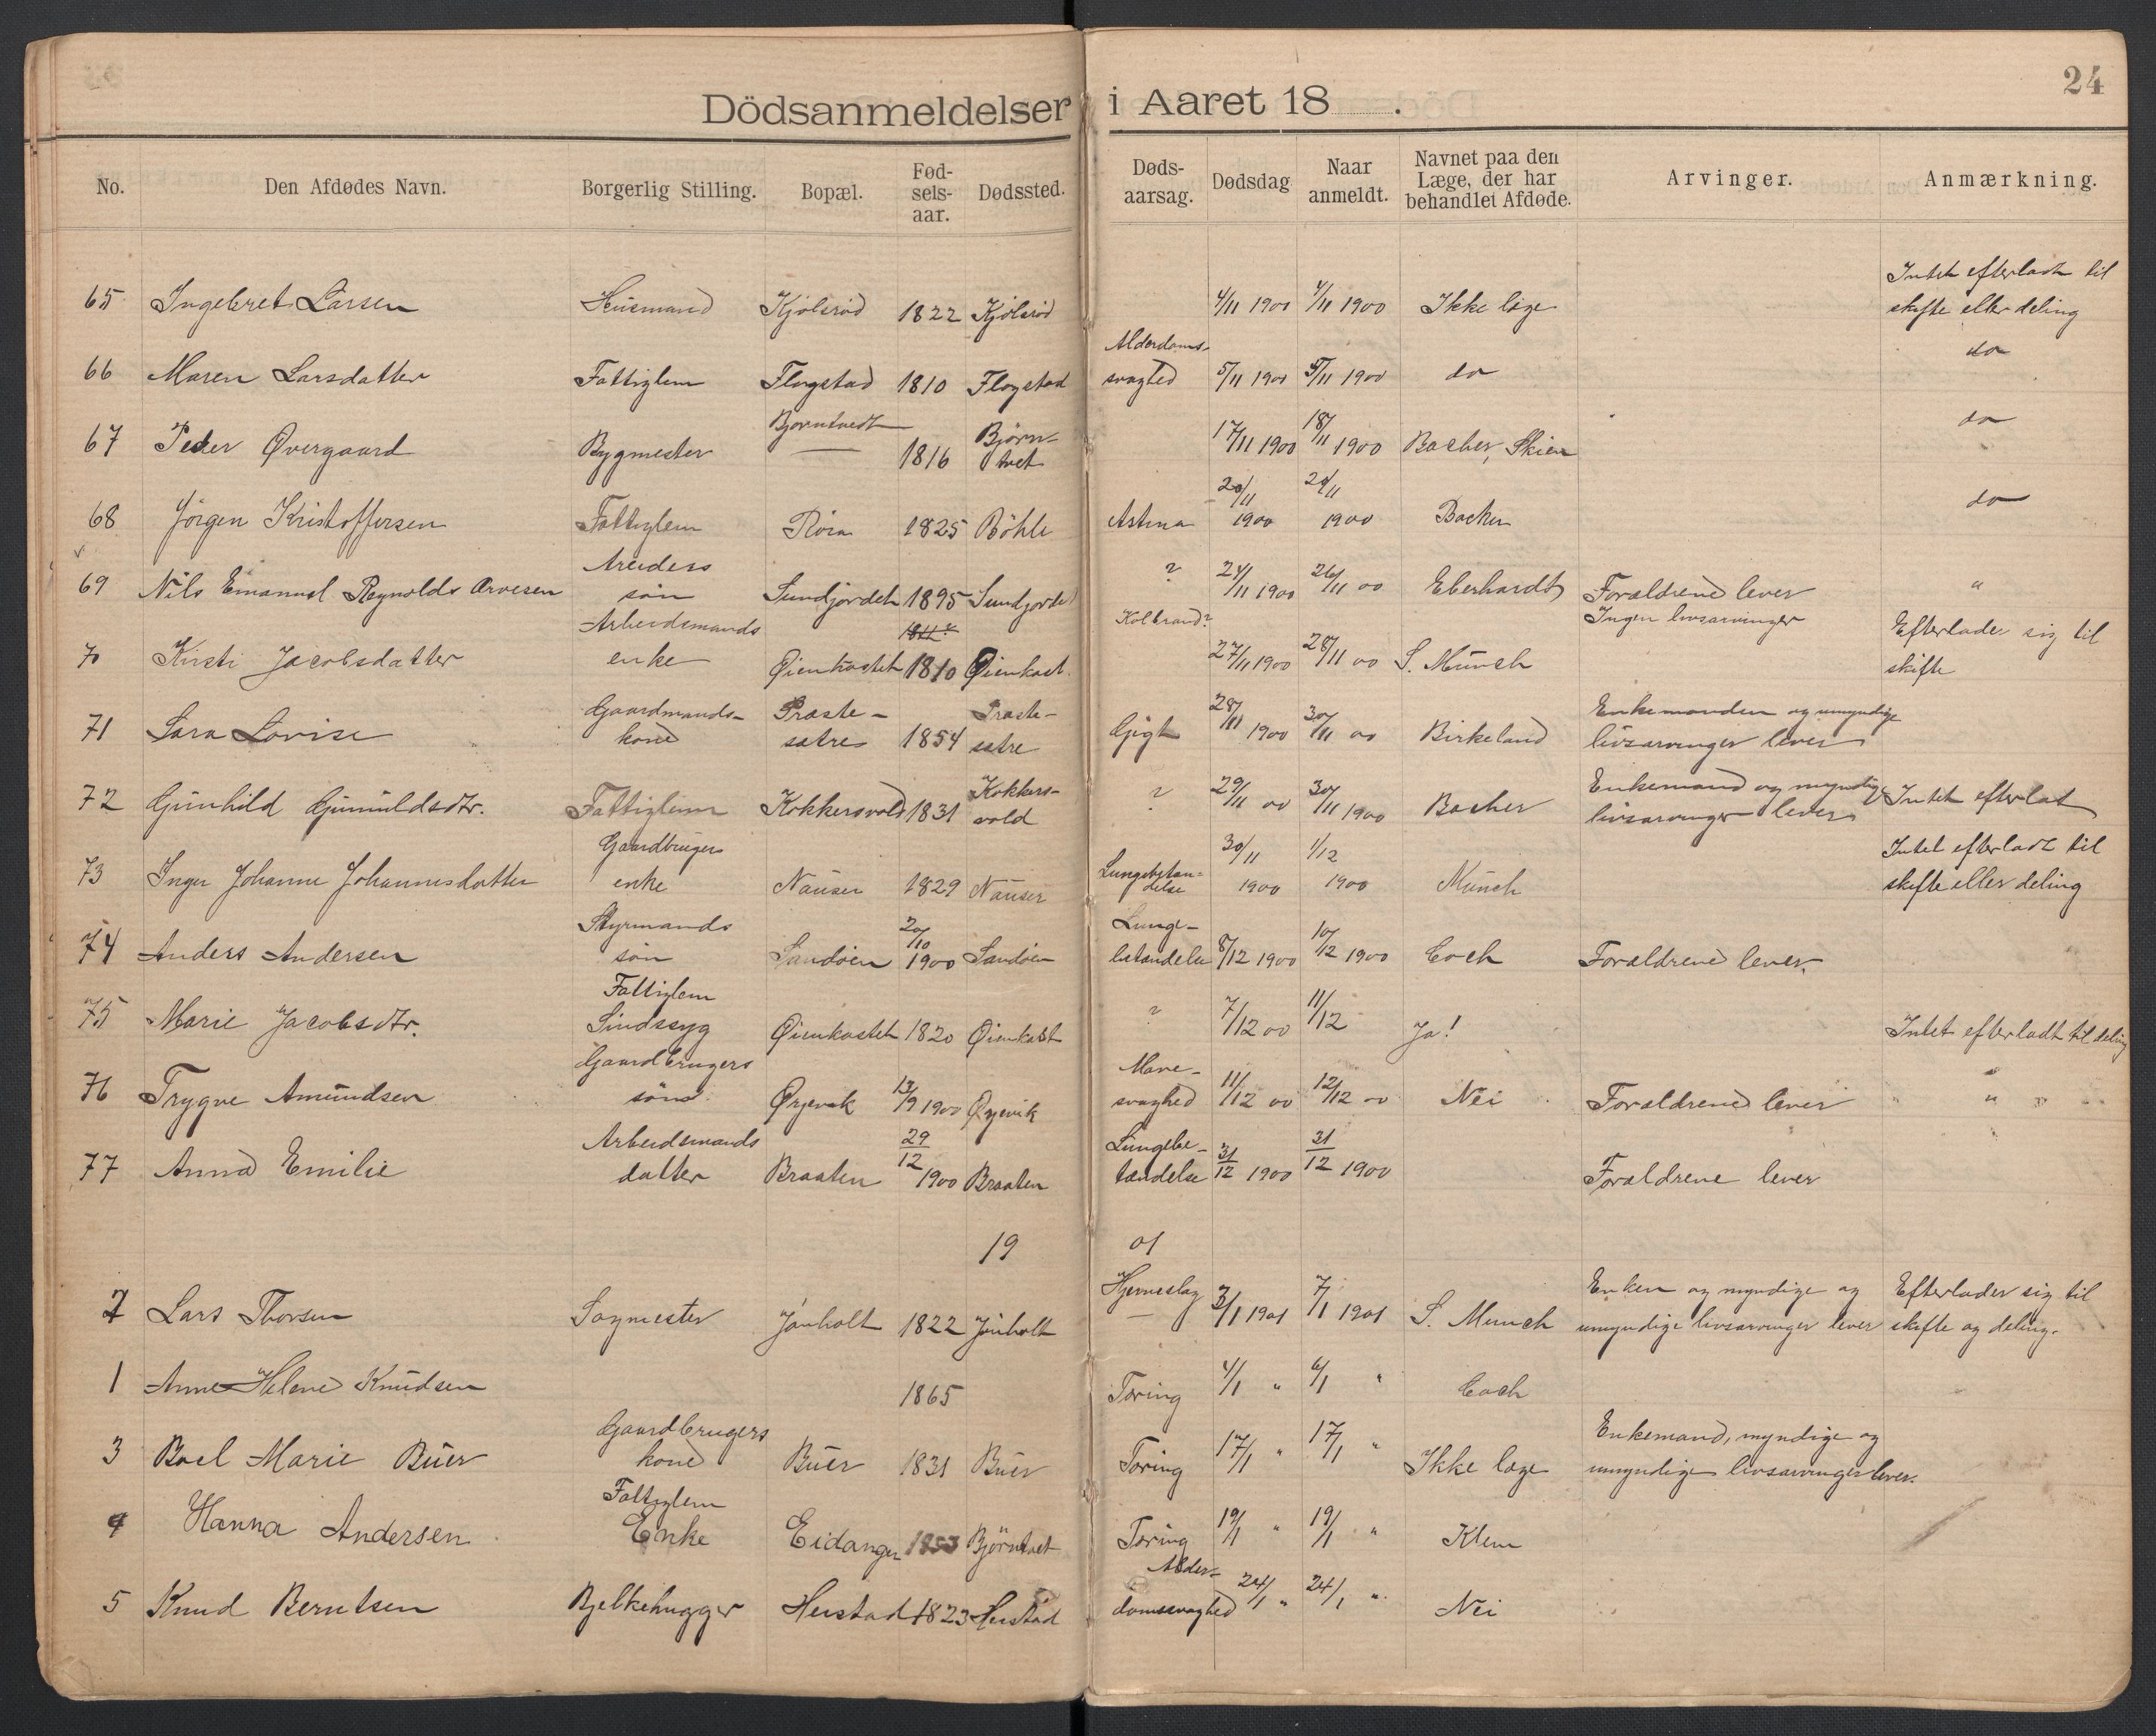 24
Dödsanmeldelser i Aaret 18 .
No. Den Afdødes Navn. Borgerlig Stilling. Bopæl. Fød-sels-aar. Dødssted. Døds-aarsag. Dødsdag Naar anmeldt. Navnet paa den Læge, der har behandlet Afdøde. Arvinger. Anmærkning.
65 Ingebret Larsen Husmand Kjølsrød 1822 Kjølsrød 4/11 1900 7/11 1900 Ikke læge Intet efterladt til skifte eller deling
66 Maren Larsdatter Fattiglem Flogstad 1810 Flogstad Alderdoms-svaghed 5/11 1900 5/11 1900 do do
67 Peder Øvergaard Bygmester Bjorntvedt 1816 Björn-tvet 17/11 1900 18/11 1900 Backer, Skien do
68 Jörgen Kristoffersen Fattiglem Röra 1825 Böhle Astma 20/11 1900 20/11 1900 Backer do
69 Nils Emanuel Reynolds Arvesen søn Sundjordet 1895 Sundjordet ? 24/11 1900 26/11 00 Eberhardt Forældrene lever "
70 Kirsti Jacobsdatter Arbeidsmands enke Øienkastet 1810 Øienkast Kolbrand? 27/11 1900 28/11 00 S. Münch Ingen livsarvinger Efterlader sig til skifte
71 Sara Lovise Gaardmands-kone Præste-sætre 1854 Præste-sætre Gigt 28/11 1900 30/11 00 Birkeland Enkemanden og umyndige livsarvinger lever
72 Gunhild Gunnuldsdtr. Fattiglem Kokkersvold 1831 Kokkers-vold ? 29/11 00 30/11 1900 Backer Enkemand og myndige livsarvinger lever Intet efterlat
73 Inger Johanne Johannesdatter Gaardbrugers enke Nauser 1829 Nauser Lungebetæn-delse 30/11 1900 1/12 1900 Münch Intet efterladt til skifte eller deling
74 Anders Andersen Styrmands søn Sandøen 20/10 1900 Sandøen Lunge-betændelse 8/12 1900 10/12 1900 Coch Forældrene lever.
75 Marie Jacobsdtr. Fattiglem Sindssyg Øienkastet 1820 Øienkast ? 7/12 00 11/12 Ja! Intet efterladt til deling
76 Trygve Amundsen Gaardbrugers søn Ørjevik 13/9 1900 Ørjevik Mave-svaghed 11/12 00 12/12 00 Nei Forældrene lever " " "
77 Anna Emilie Arbeidsmands datter Braaten 29/12 1900 Braaten Lungebe-tændelse 31/12 1900 31/12 1900 Forældrene lever
19 01
2 Lars Thorsen Sagmester Jønholt 1822 Jønholt Hjerneslag 3/1 1901 7/1 1901 S. Munch Enken og myndige og umyndige livsarvinger lever Efterlader sig til skifte og deling.
1 Anne Helene Knudsen 1865 Tæring 4/1 " 6/1 " Coch
3 Boel Marie Buer Gaardbrugers kone Buer 1831 Buer Tæring 17/1 " 17/1 " Ikke læge Enkemand, myndige og umyndige livsarvinger lever.
4 Hanna Andersen Fattiglem Enke Eidanger 1853 Björntvet Tæring 19/1 " 19/1 " Klem
5 Knud Berntsen Bjelkehugger Heistad 1823 Heistad Alder-domssvaghed 24/1 " 24/1 " Nei